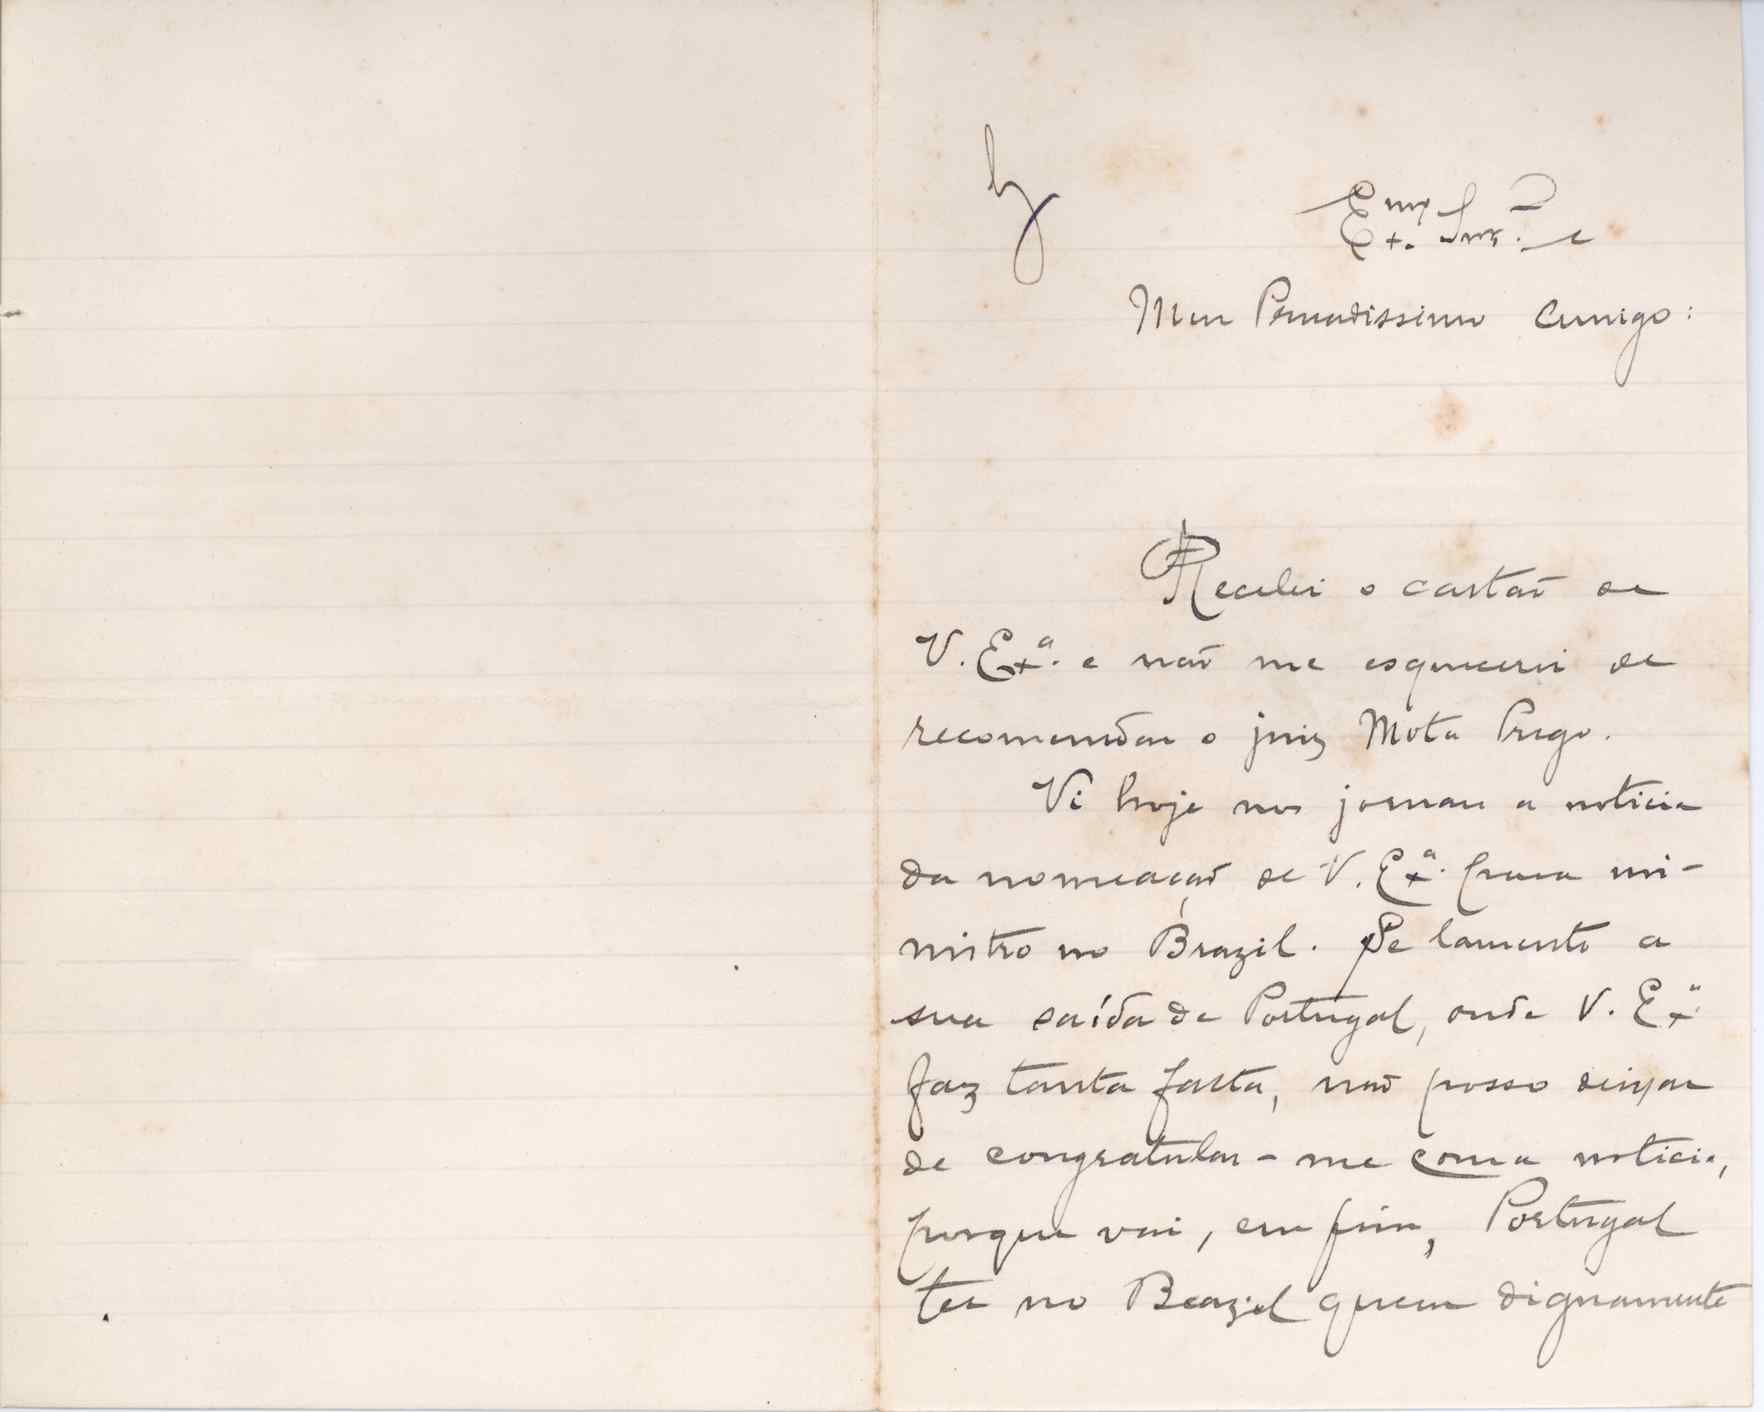 Ex.mo Snr. e
Meu Prezadissimo Amigo:
Recebi o cartão de
V. Ex.a e não me esquecerei de
recomendar o juiz Mota Prego.
Vi hoje nos jornaes a noticia
da nomeação de V. Ex.a para mi-
nistro no Brazil. Se lamento a
sua saída de Portugal, onde V. Ex.a
faz tanta falta, não posso deixar
de congratular-me com a noticia,
porque vai, em fim, Portugal
ter no Brazil quem dignamente